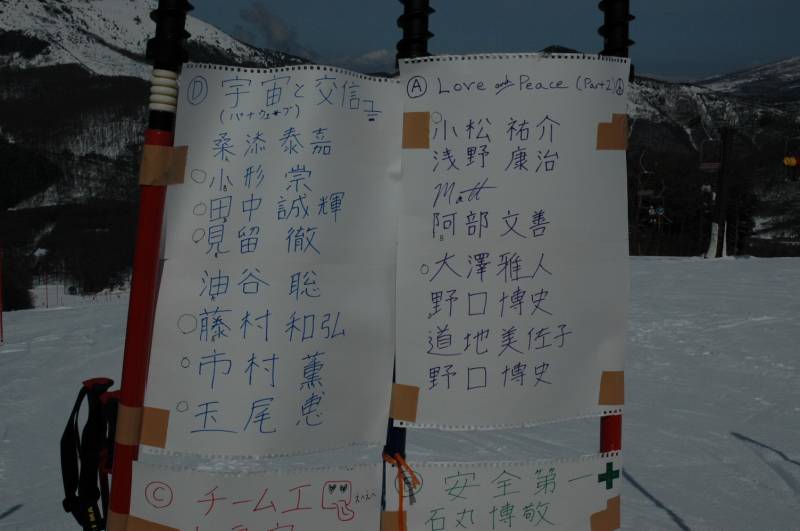 Ⓓ 宇宙と交信
(バナウェーブ)
桑添泰嘉
○小形 崇
○田中誠輝
○見留 徹
油谷 聡
○藤村和弘
○市村 薫
○玉尾 恵
Ⓐ Love and Peace (Part2)
○小松祐介
浅野康治
Matt
阿部文善
○大澤雅人
野口博史
道地美佐子
野口博史
Ⓒ チームエ
安全第一
石丸博敬